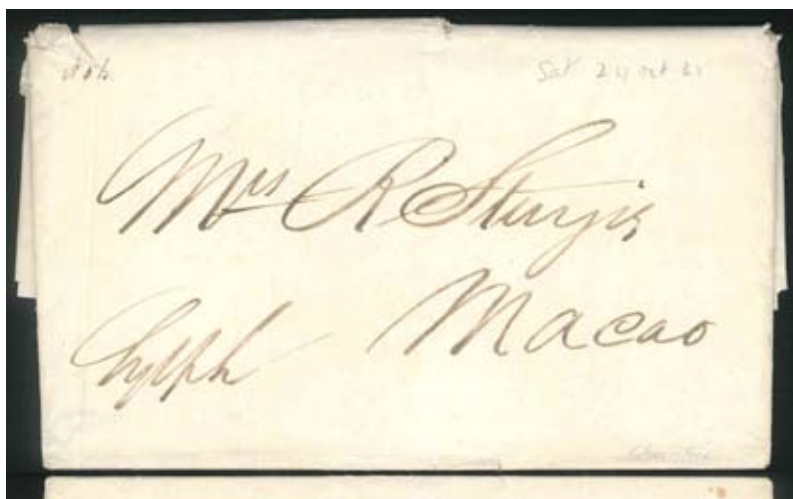 Sat 24 Oct
Mrs R Sturgis
Macao
Sylph